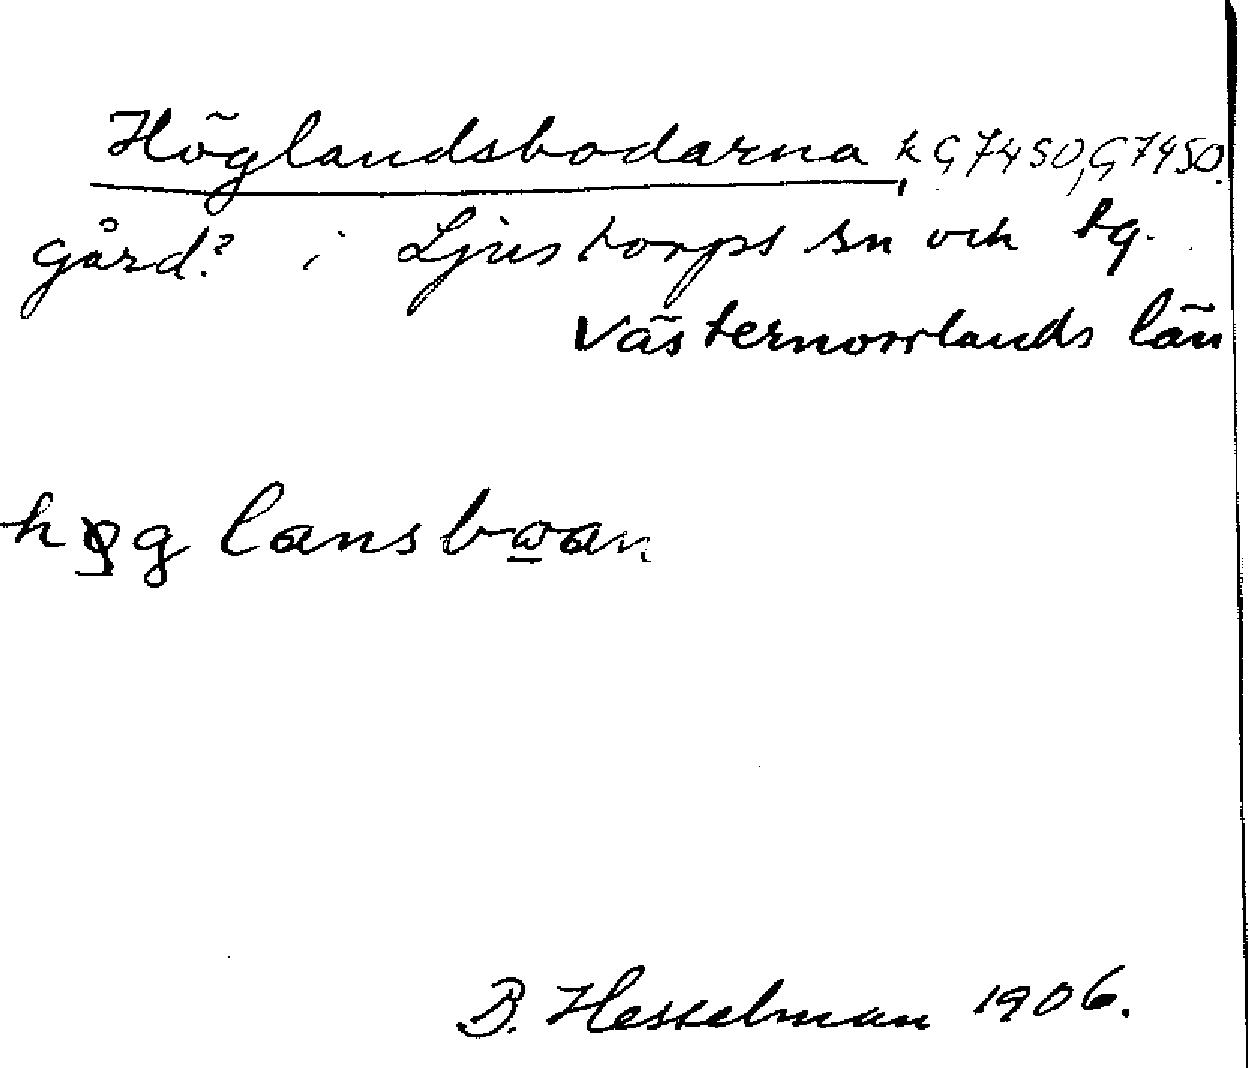 Höglandsbodarna k G7450, G7450.
gård? i Ljustorps sn och tg.
Västernorrlands län
høg lansbωan.
B. Hesselman 1906.